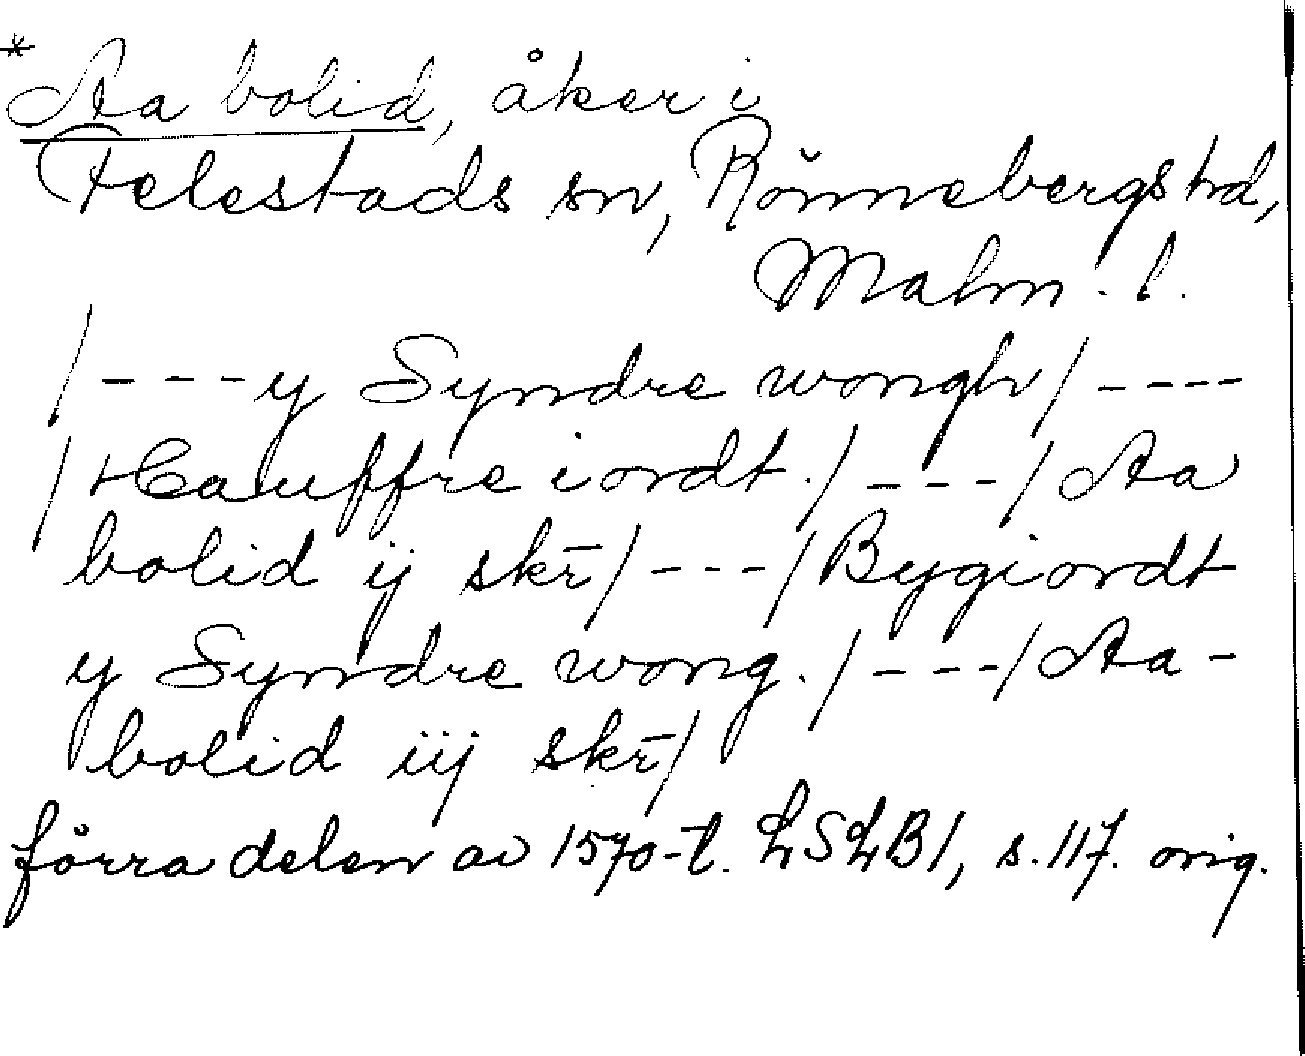 *Aa bolid, åker i
Felestads sn, Rönnebergs hd,
Malm. l.
/---y Syndre wongh/----
/Hauffre iordt./---/Aa
bolid ij skr̄/---/Bygiordt
y Syndre wong./---/Aa-
bolid iij skr̄/
förra delen av 1570-t. LSLB1, s. 117. orig.